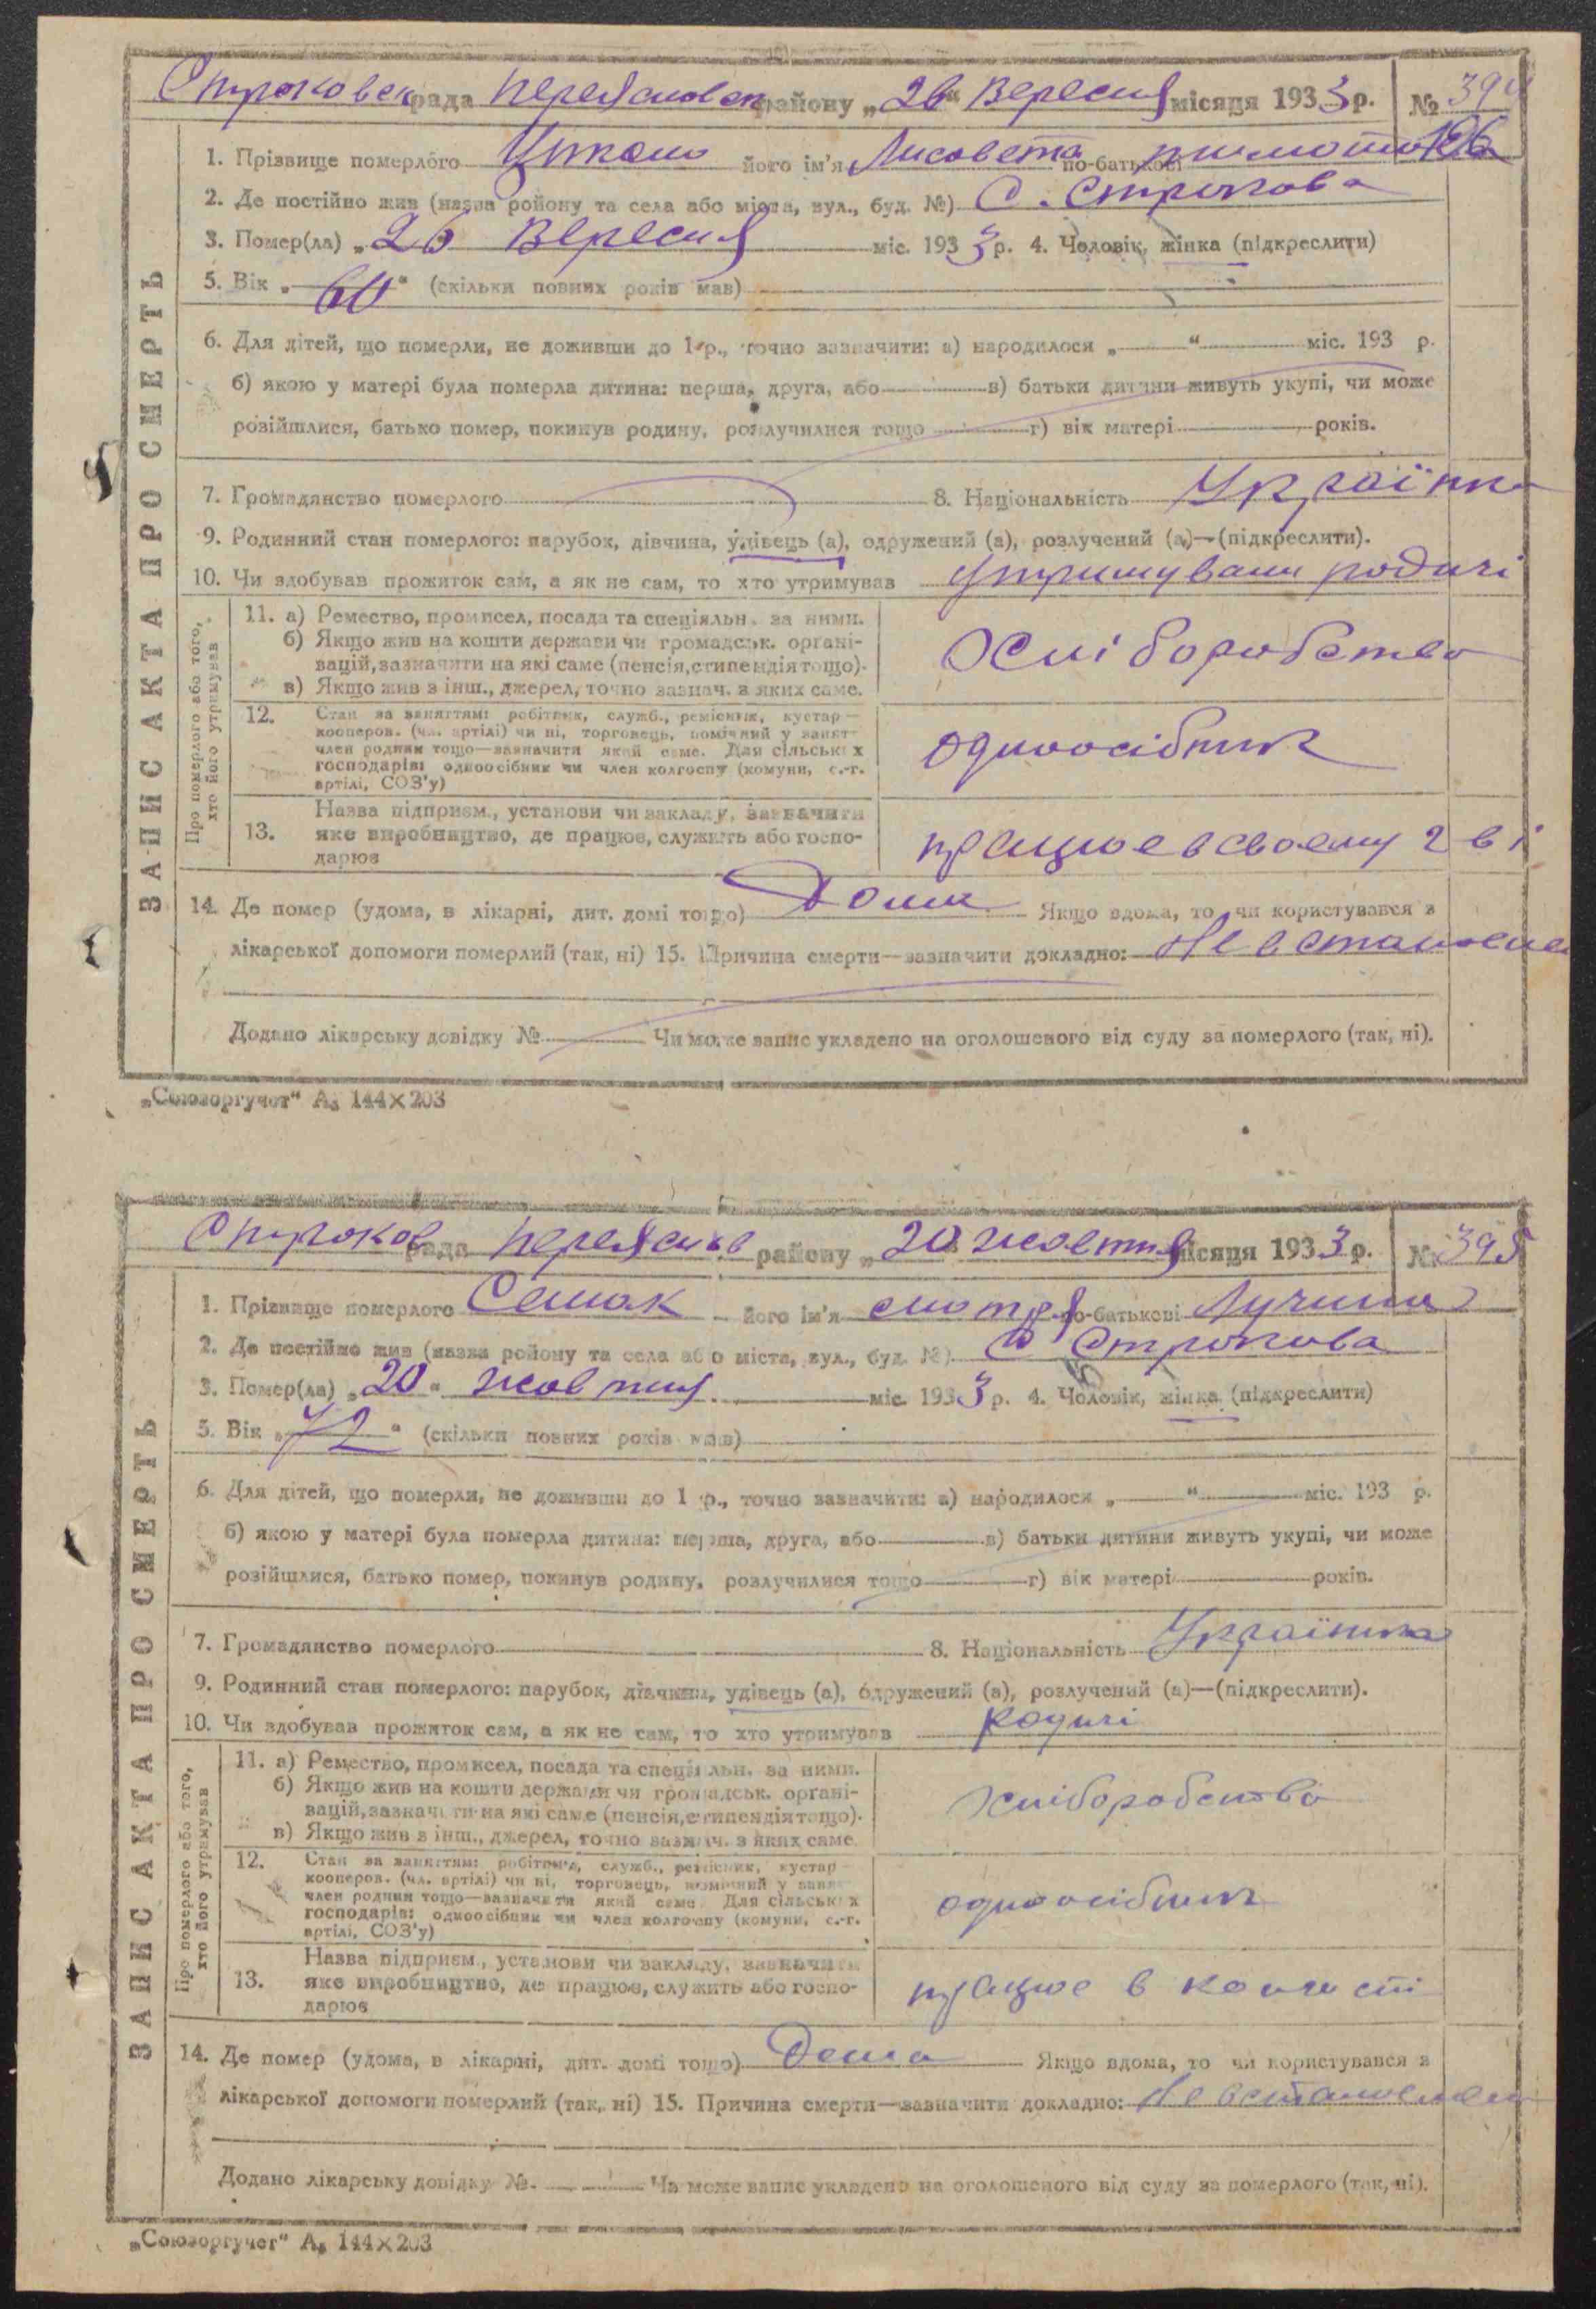 Строковск рада Переясловск району „26“ Вересня місяця 1933 р. № 394
196
1. Прізвище померлого його ім'я Лисовета по-батькові
2. Де постійно жив (назва району та села або міста, вул., буд. №) С. Строкова
3. Помер(ла) „26 Вересня міс. 1933 р. 4. Чоловік, жінка (підкреслити)
5. Вік „60“ (скільки повних років мав)
6. Для дітей, що померли, не доживши до 1 р., точно зазначити: а) народилося „ “ міс. 193 р.
б) якою у матері була померла дитина: перша, друга, або в) батьки дитини живуть укупі, чи може
розійшлися, батько помер, покинув родину, розлучилися тощо г) вік матері років.
7. Громадянство померлого 8. Національність Українка
9. Родинний стан померлого: парубок, дівчина, удівець (а), одружений (а), розлучений (а)—(підкреслити).
10. Чи здобував прожиток сам, а як не сам, то хто утримував Утримували родичі
ЗАПИС АКТА ПРО СМЕРТЬ
Про померлого або того, хто його утримував
11. а) Ремество, промисел, посада та спеціяльн. за ними.
б) Якщо жив на кошти держави чи громадськ. органі-
зацій, зазначити на які саме (пенсія, стипендія тощо).
в) Якщо жив з інш., джерел, точно зазнач. з яких саме.
Хліборобство
12. Стан за заняттям: робітник, служб., ремісник, кустар—
кооперов. (чл. артілі) чи ні, торговець, помічний у занят-
член родини тощо—зазначити який саме. Для сільських
господарів: одноосібник чи член колгоспу (комуни, с.-г.
артілі, СОЗ'у)
одноосібник
13. Назва підприєм., установи чи закладу, зазначити
яке виробництво, де працює, служить або госпо-
дарює
працює в своему г ві
14. Де помер (удома, в лікарні, дит. домі тощо) Дома Якщо вдома, то чи користувався з
лікарської допомоги померлий (так, ні) 15. Причина смерти—зазначити докладно: Не встановлен
Додано лікарську довідку № Чи може запис укладено на оголошеного від суду за померлого (так, ні).
„Союзоргучет“ А₅ 144×203
Строков рада Переяслов району „20“ жовтня місяця 1933 р. № 395
1. Прізвище померлого Семак його ім'я мотря по-батькові Лучина
2. Де постійно жив (назва району та села або міста, вул., буд. №) С Строкова
3. Помер(ла) „20“ жовтня міс. 1933 р. 4. Чоловік, жінка (підкреслити)
5. Вік „72“ (скільки повних років мав)
6. Для дітей, що померли, не доживши до 1 р., точно зазначити: а) народилося „ “ міс. 193 р.
б) якою у матері була померла дитина: перша, друга, або в) батьки дитини живуть укупі, чи може
розійшлися, батько помер, покинув родину, розлучилися тощо г) вік матері років.
7. Громадянство померлого 8. Національність Українка
9. Родинний стан померлого: парубок, дівчина, удівець (а), одружений (а), розлучений (а)—(підкреслити).
10. Чи здобував прожиток сам, а як не сам, то хто утримував Родичі
ЗАПИС АКТА ПРО СМЕРТЬ
Про померлого або того, хто його утримував
11. а) Ремество, промисел, посада та спеціяльн. за ними.
б) Якщо жив на кошти держави чи громадськ. органі-
зацій, зазначити на які саме (пенсія, стипендія тощо).
в) Якщо жив з інш., джерел, точно зазнач. з яких саме.
Хліборобство
12. Стан за заняттям: робітник, служб., ремісник, кустар—
кооперов. (чл. артілі) чи ні, торговець, помічний у занят-
член родини тощо—зазначити який саме. Для сільських
господарів: одноосібник чи член колгоспу (комуни, с.-г.
артілі, СОЗ'у)
одноосібник
13. Назва підприєм., установи чи закладу, зазначити
яке виробництво, де працює, служить або госпо-
дарює
працює в
14. Де помер (удома, в лікарні, дит. домі тощо) Дома Якщо вдома, то чи користувався з
лікарської допомоги померлий (так, ні) 15. Причина смерти—зазначити докладно: Не встановлен
Додано лікарську довідку №. Чи може запис укладено на оголошеного від суду за померлого (так, ні).
„Союзоргучет“ А₅ 144×203